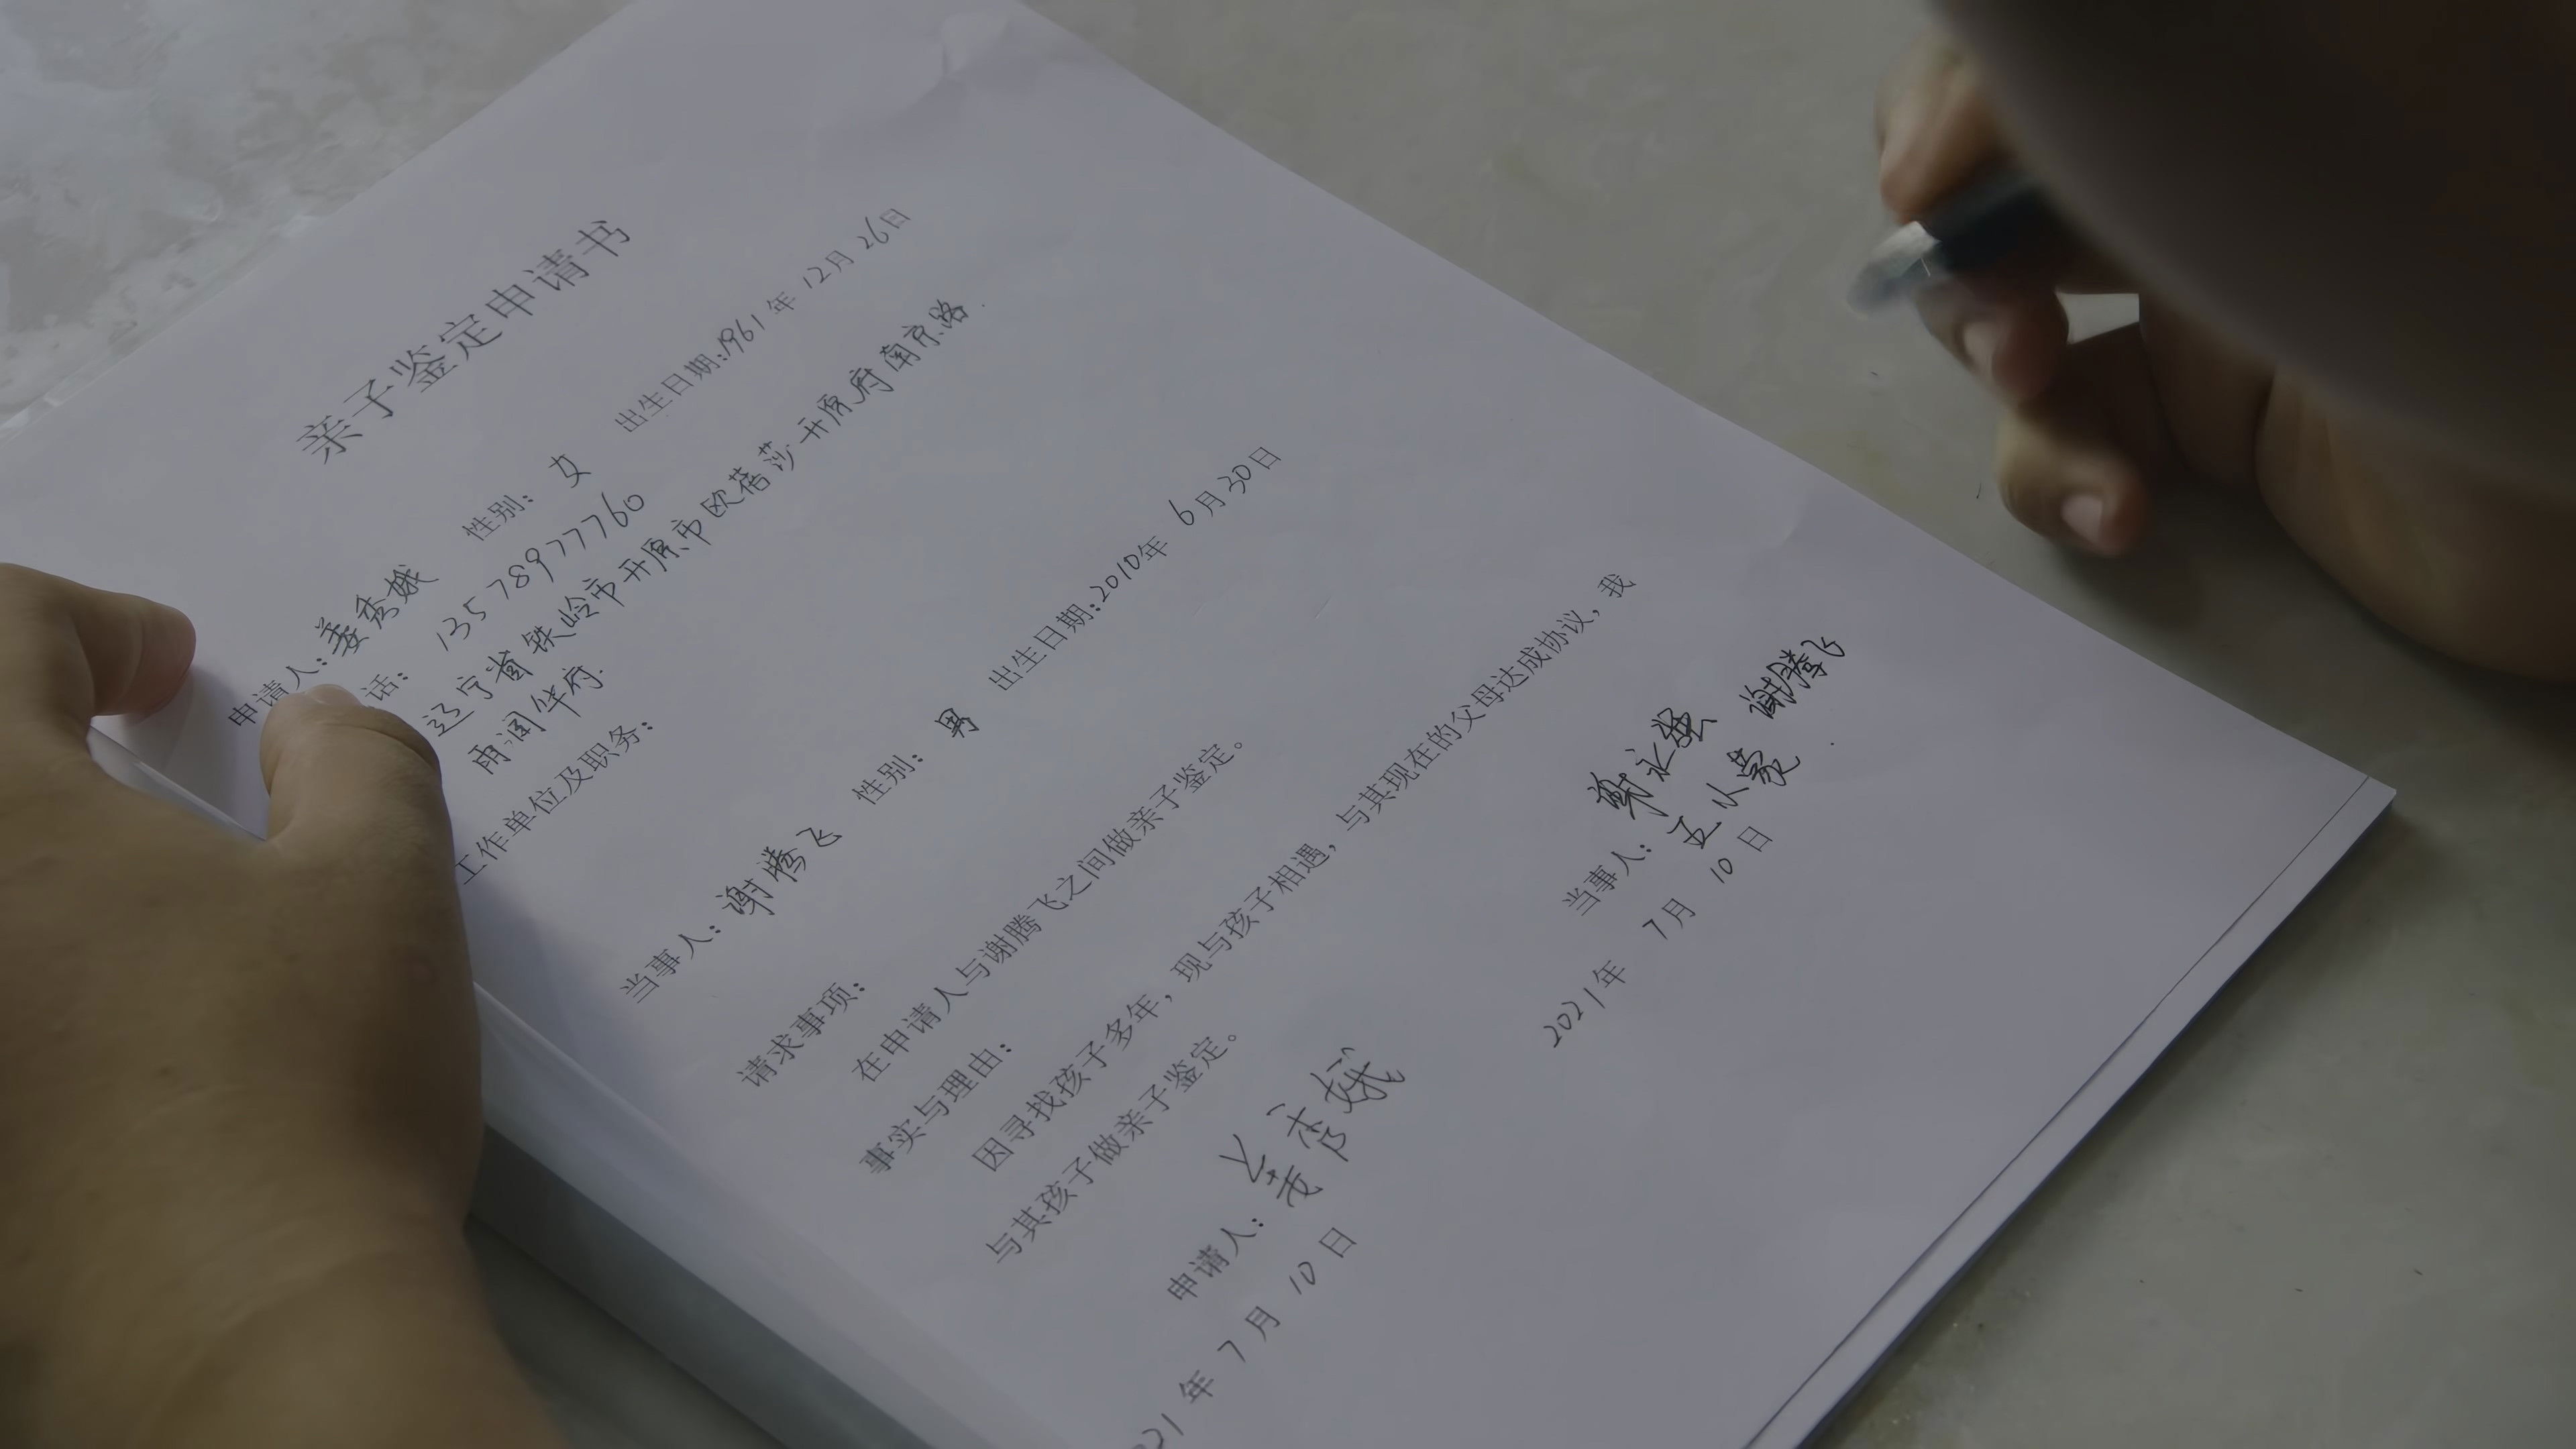 亲子鉴定申请书
申请人：姜秀娥 性别：女 出生日期：1961年12月26日
话： 13578977760
辽宁省铁岭市开原市欧蓓莎开原府南京路
雨润华府
工作单位及职务：
当事人：谢腾飞 性别：男 出生日期：2010年6月30日
请求事项：
在申请人与谢腾飞之间做亲子鉴定。
事实与理由：
因寻找孩子多年，现与孩子相遇，与其现在的父母达成协议，我
与其孩子做亲子鉴定。
申请人：姜秀娥
21年7月10日
谢永强 谢腾飞
当事人：
2021年7月10日